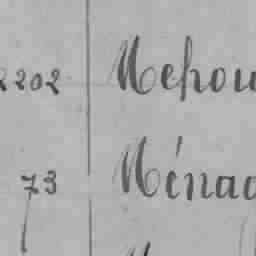 2202 Mepou
73 Ménac